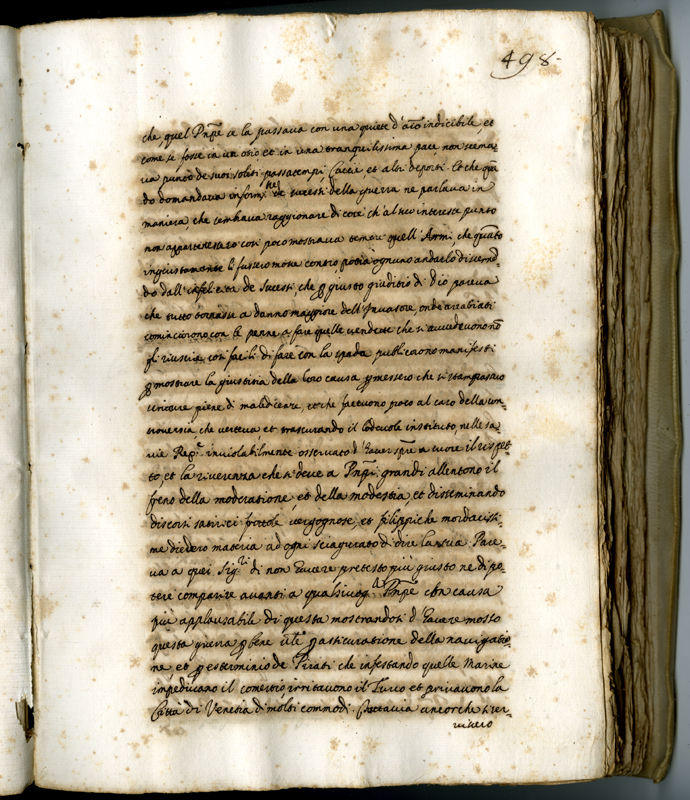 498.
che quel Pnpe se la passava con una quiete d'aio indicibile, et
come se fosse in un otio et in una tranquilissima pace non scema,
va punto de suoi soliti passatempi Caccie et altri deporti. Et che qũ
do domandava inform.ne de sucessi della guerra ne parlava in
maniera, che sembrava raggionare di cose ch'al suo interesse punto
non appartenessero così poco mostrava temere quell'Armi che quãto
ingiustamente li fussero mosse contro potea ognuno andarlo discernẽ,
do dall'infelicità de Sucessi, che ꝑ giusto giuditio di Dio pareva
che tutto tornasse a danno maggiore dell'Invasore, onde arrabiati
cominciorono con le penne a fare quelle vendette che si avvedevono nõ
gli riuscire così facili di fare con la spada publicarono manifesti
ꝑ mostrare la giustitia della loro causa ꝑmessero che si stampassero
scritture piene di maledicenze, et che facevono poco al caso della con,
troversia, che verteva et trascurando il lodevole instituto, nelle sa,
vie Rep.e inviolabilmente osservato d'haver sp̃re a cuore il rispet,
to, et la riverenza che si deve a Pnpi grandi allentono il
freno della moderatione, et della modestia et disseminando
discorsi satirici frottole vergognose, et filippiche mordacissi,
me diedero materia ad ogni sciagurato di dire la sua. Pare,
va a quei Sig.ri di non havere pretesto più giusto ne di po,
tere comparire avanti a qualsivog.a Pnpe con causa
più applausabile di questa mostrandosi d'havere mosso
questa guerra ꝑ bene ꝑ asicuratione della navigatio,
ne et ꝑ esterminio de Pirati che infestando quelle Marine
impedivano il comertio irritavono il Turco et privavono la
Città di Venetia di molti commodi. Tuttavia ancorche si ser,
vissero